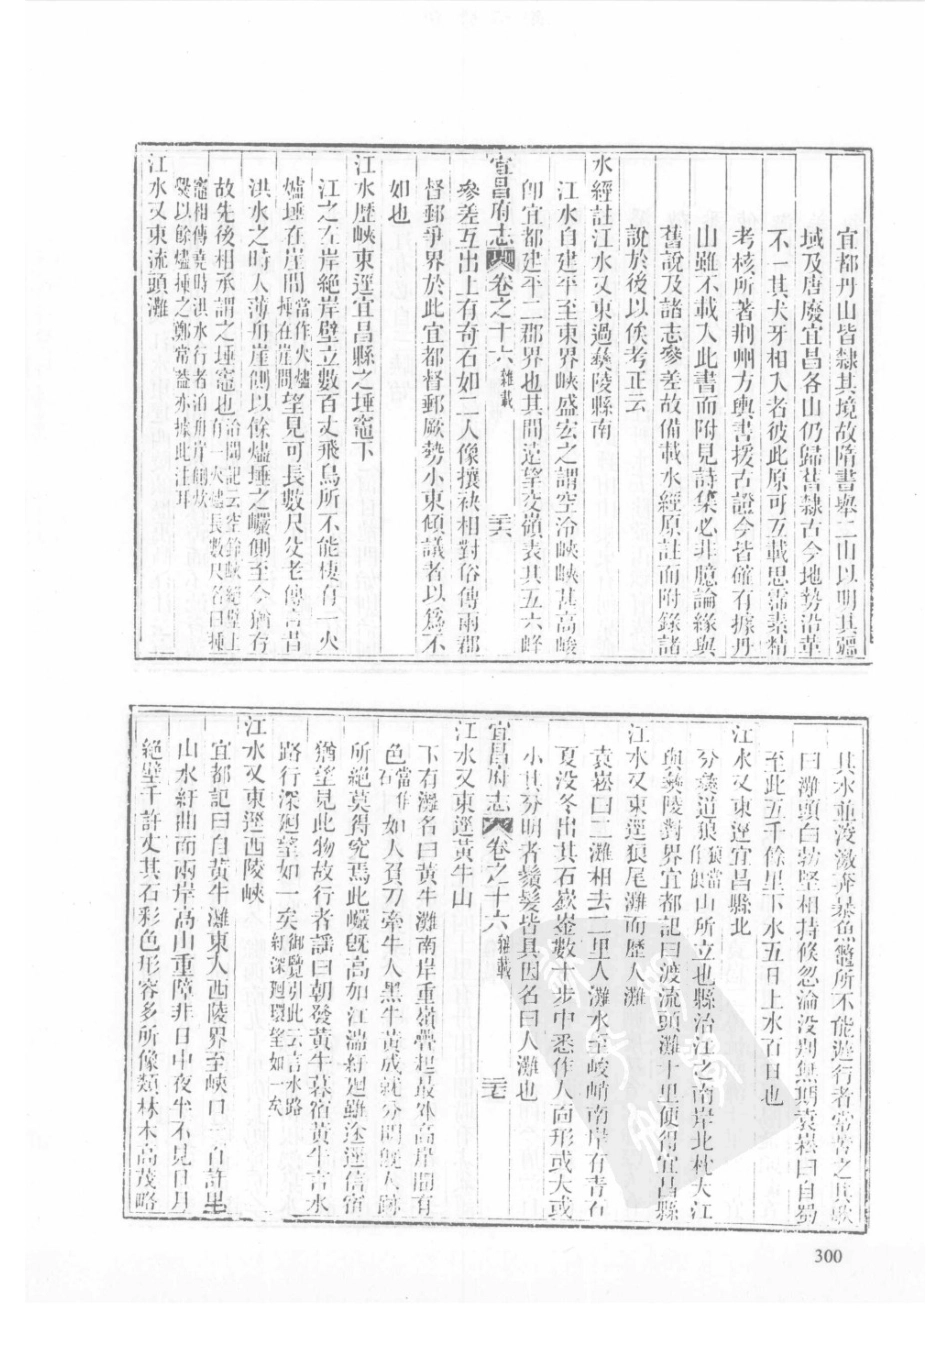 宜都丹山皆隸其境故隋書舉二山以明其疆
域及唐廢宜昌各山仍歸舊隸古今地勢沿革
不一其犬牙相入者彼此原可互載思霈素精
考核所著荆州方輿書援古證今皆確有據丹
山雖不載入此書而附見詩集必非臆論緣與
舊說及諸志參差故備載水經原註而附錄諸
說於後以俟考正云
水經註江水又東過彞陵縣南
江水自建平至東界峽盛宏之謂空泠峽峽甚高峻
卽宜都建平二郡界也其間遠望交嶺表其五六峰
宜昌府志 卷之十六 雜載 三六
參差互出上有奇石如二人像攘袂相對俗傳兩郡
督郵爭界於此宜都督郵厥勢小東傾議者以爲不
如也
江水歷峽東逕宜昌縣之埵竈下
江之左岸絕岸壁立數百丈飛鳥所不能棲有一火
爐埵在崖間當作火爐揷在崖間望見可長數尺父老傳言昔
洪水之時人薄舟崖側以餘爐埵之巗側至今猶存
故先後相承謂之埵竈也洽聞記云空鈴峽絕壁上有一火爐長數尺名曰揷
竈相傳堯時洪水行者泊舟岸側炊
爨以餘爐揷之鄭常蓋亦據此注耳
江水又東流頭灘
其水並浚激奔暴魚鼈所不能遊行者常苦之其歌
曰灘頭白勃堅相持倏忽淪没别無期袁崧曰自蜀
至此五千餘里下水五日上水百日也
江水又東逕宜昌縣北
分彞道狼狼當作佷山所立也縣治江之南岸北枕大江
與彞陵對界宜都記曰渡流頭灘十里便得宜昌縣
江水又東逕狼尾灘而歷人灘
袁崧曰二灘相去二里人灘水至峻峭南岸有青石
夏没冬出其石嶔崟數十步中悉作人面形或大或
小其分明者鬚髮皆具因名曰人灘也
宜昌府志 卷之十六 雜載 三七
江水又東逕黃牛山
下有灘名曰黃牛灘南岸重嶺疊起最外高岸間有
色當作石如人負刀牽牛人黑牛黃成就分明旣人跡
所絕莫得究焉此巗旣高加江湍紆廻雖途逕信宿
猶望見此物故行者謠曰朝發黃牛暮宿黃牛言水
路行深廻望如一矣御覽引此云言水路紆深廻環望如一矣
江水又東逕西陵峽
宜都記曰自黃牛灘東入西陵界至峽口一百許里
山水紆曲而兩岸高山重障非日中夜半不見日月
絕壁千許丈其石彩色形容多所像類林木高茂略
300